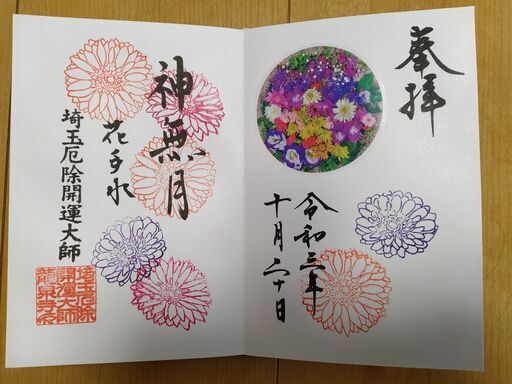 奉拝
令和三年
十月二十日
神無月
花手水
埼玉厄除開運大師
埼玉厄除
開運大師
龍泉寺